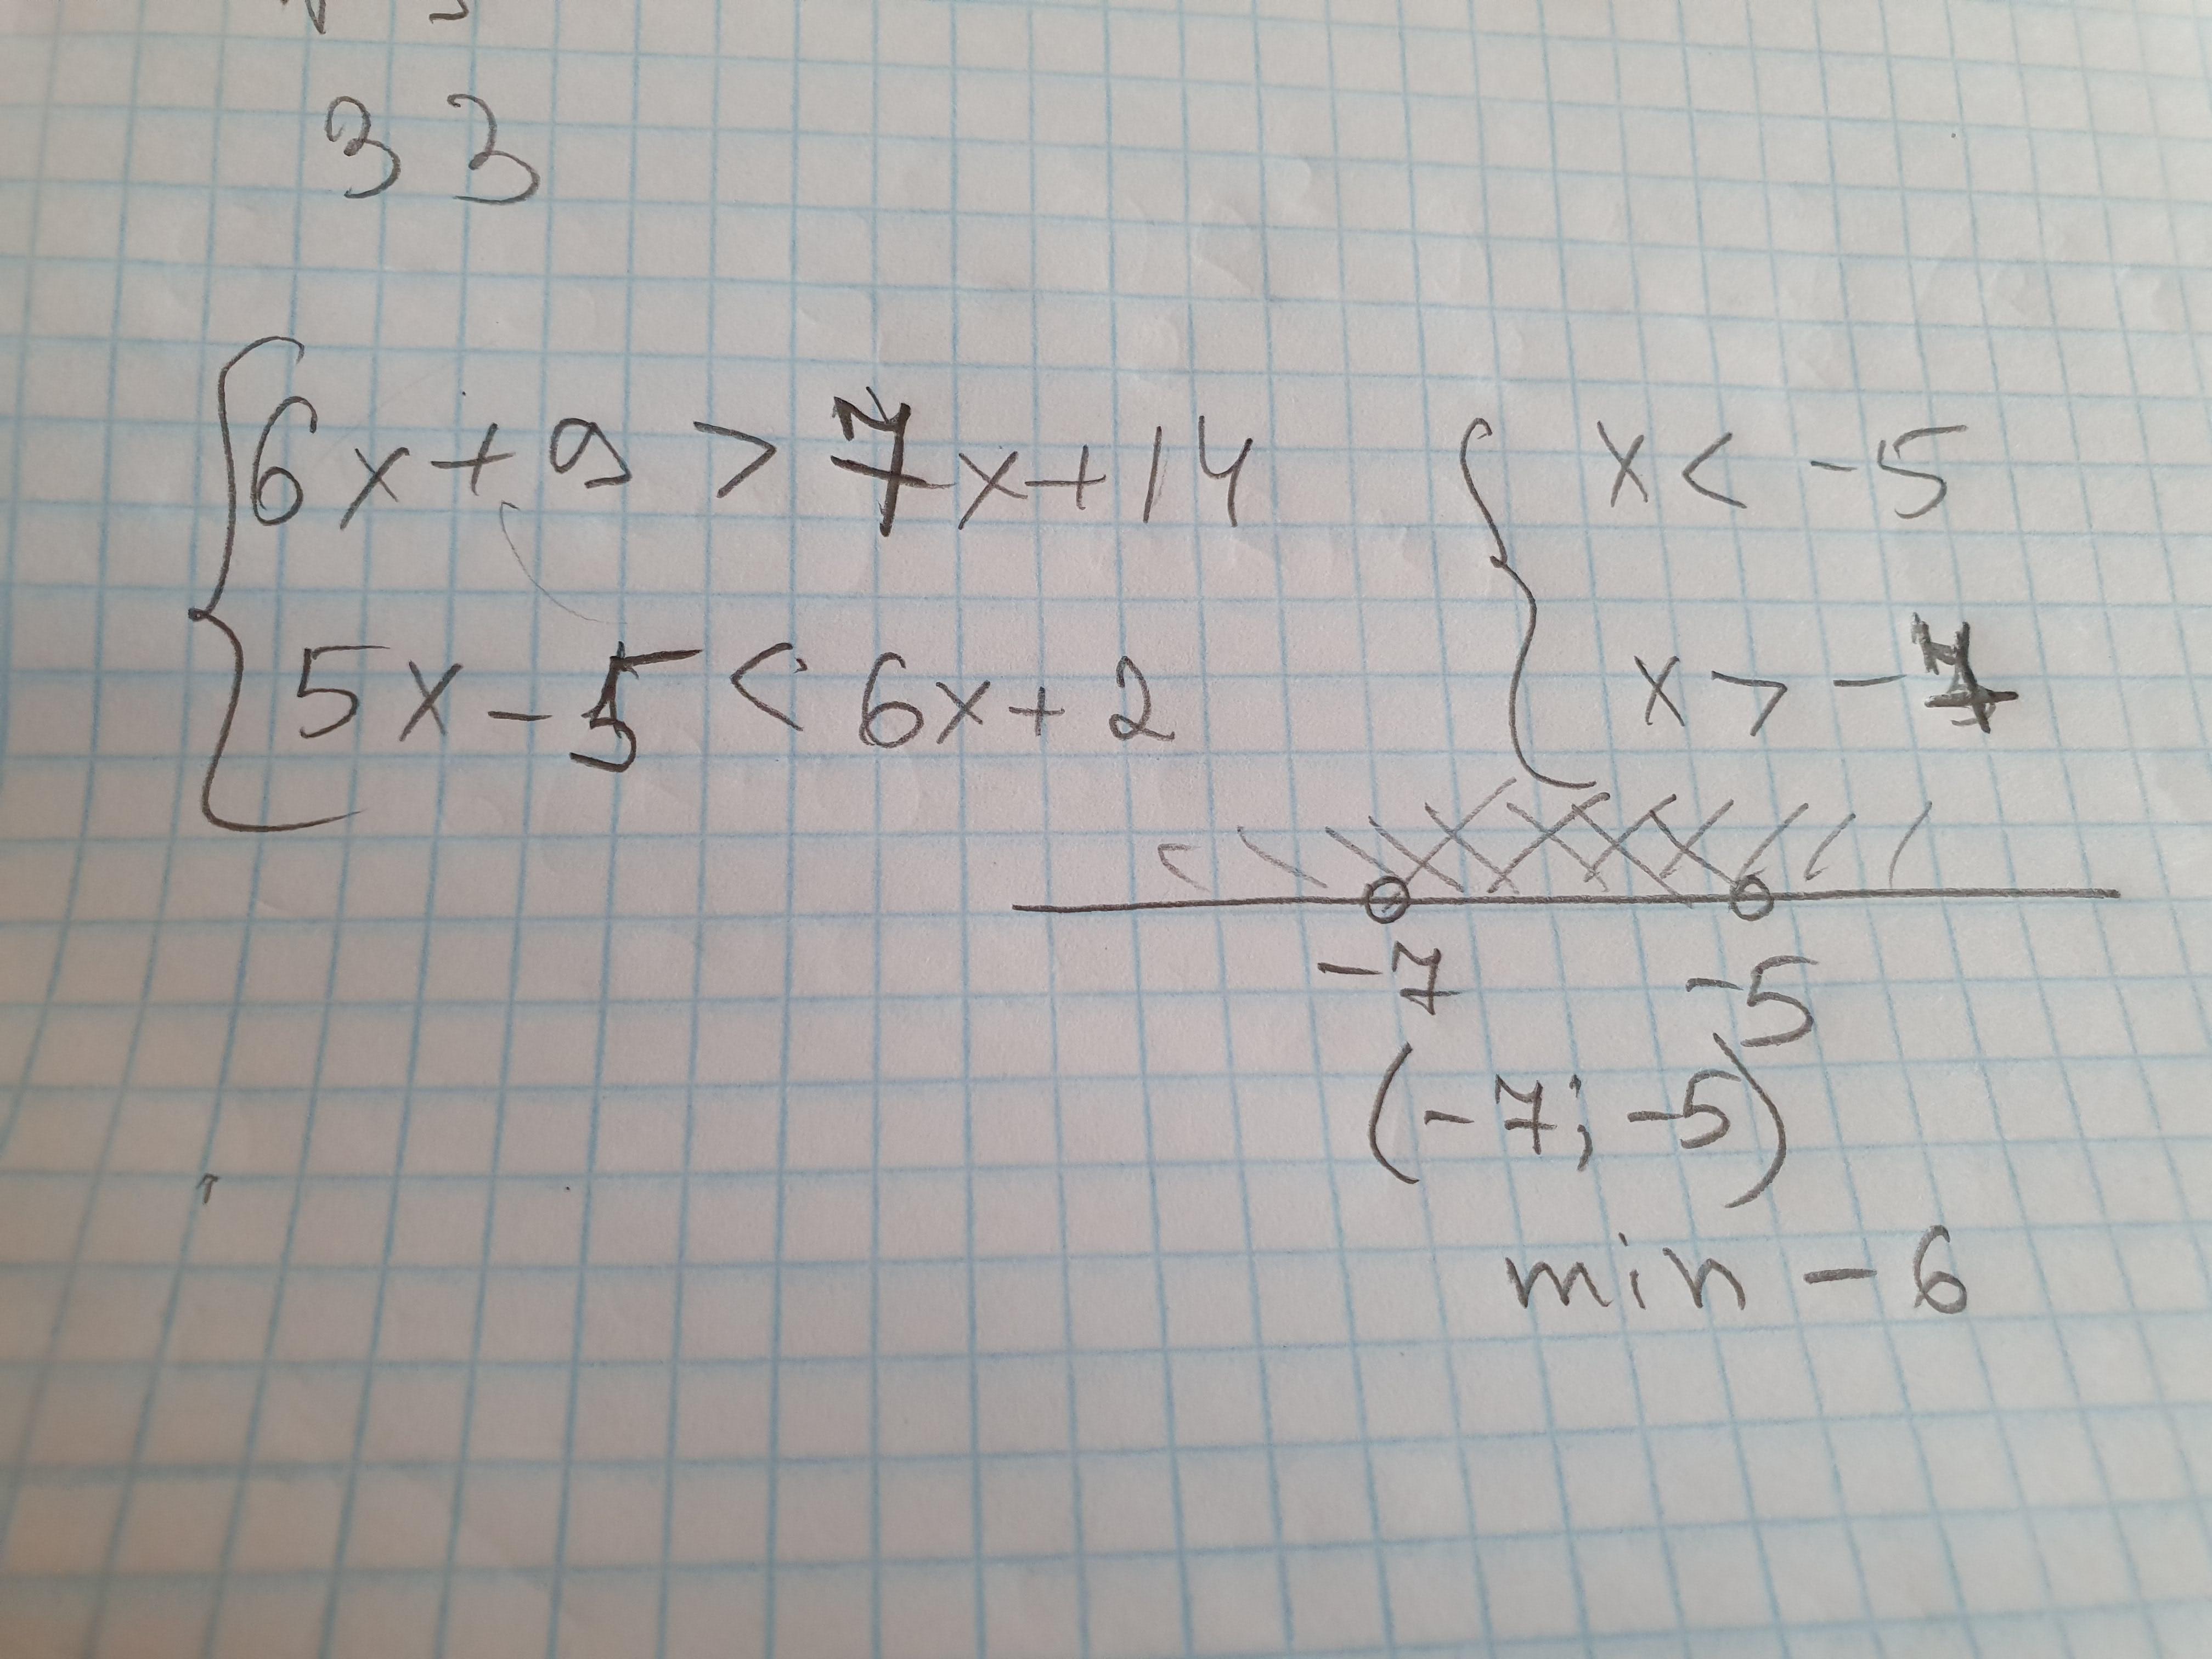 33
6x+9 > 7x+14
5x-5 < 6x+2
x < -5
x > -7
-7 -5
(-7; -5)
min -6